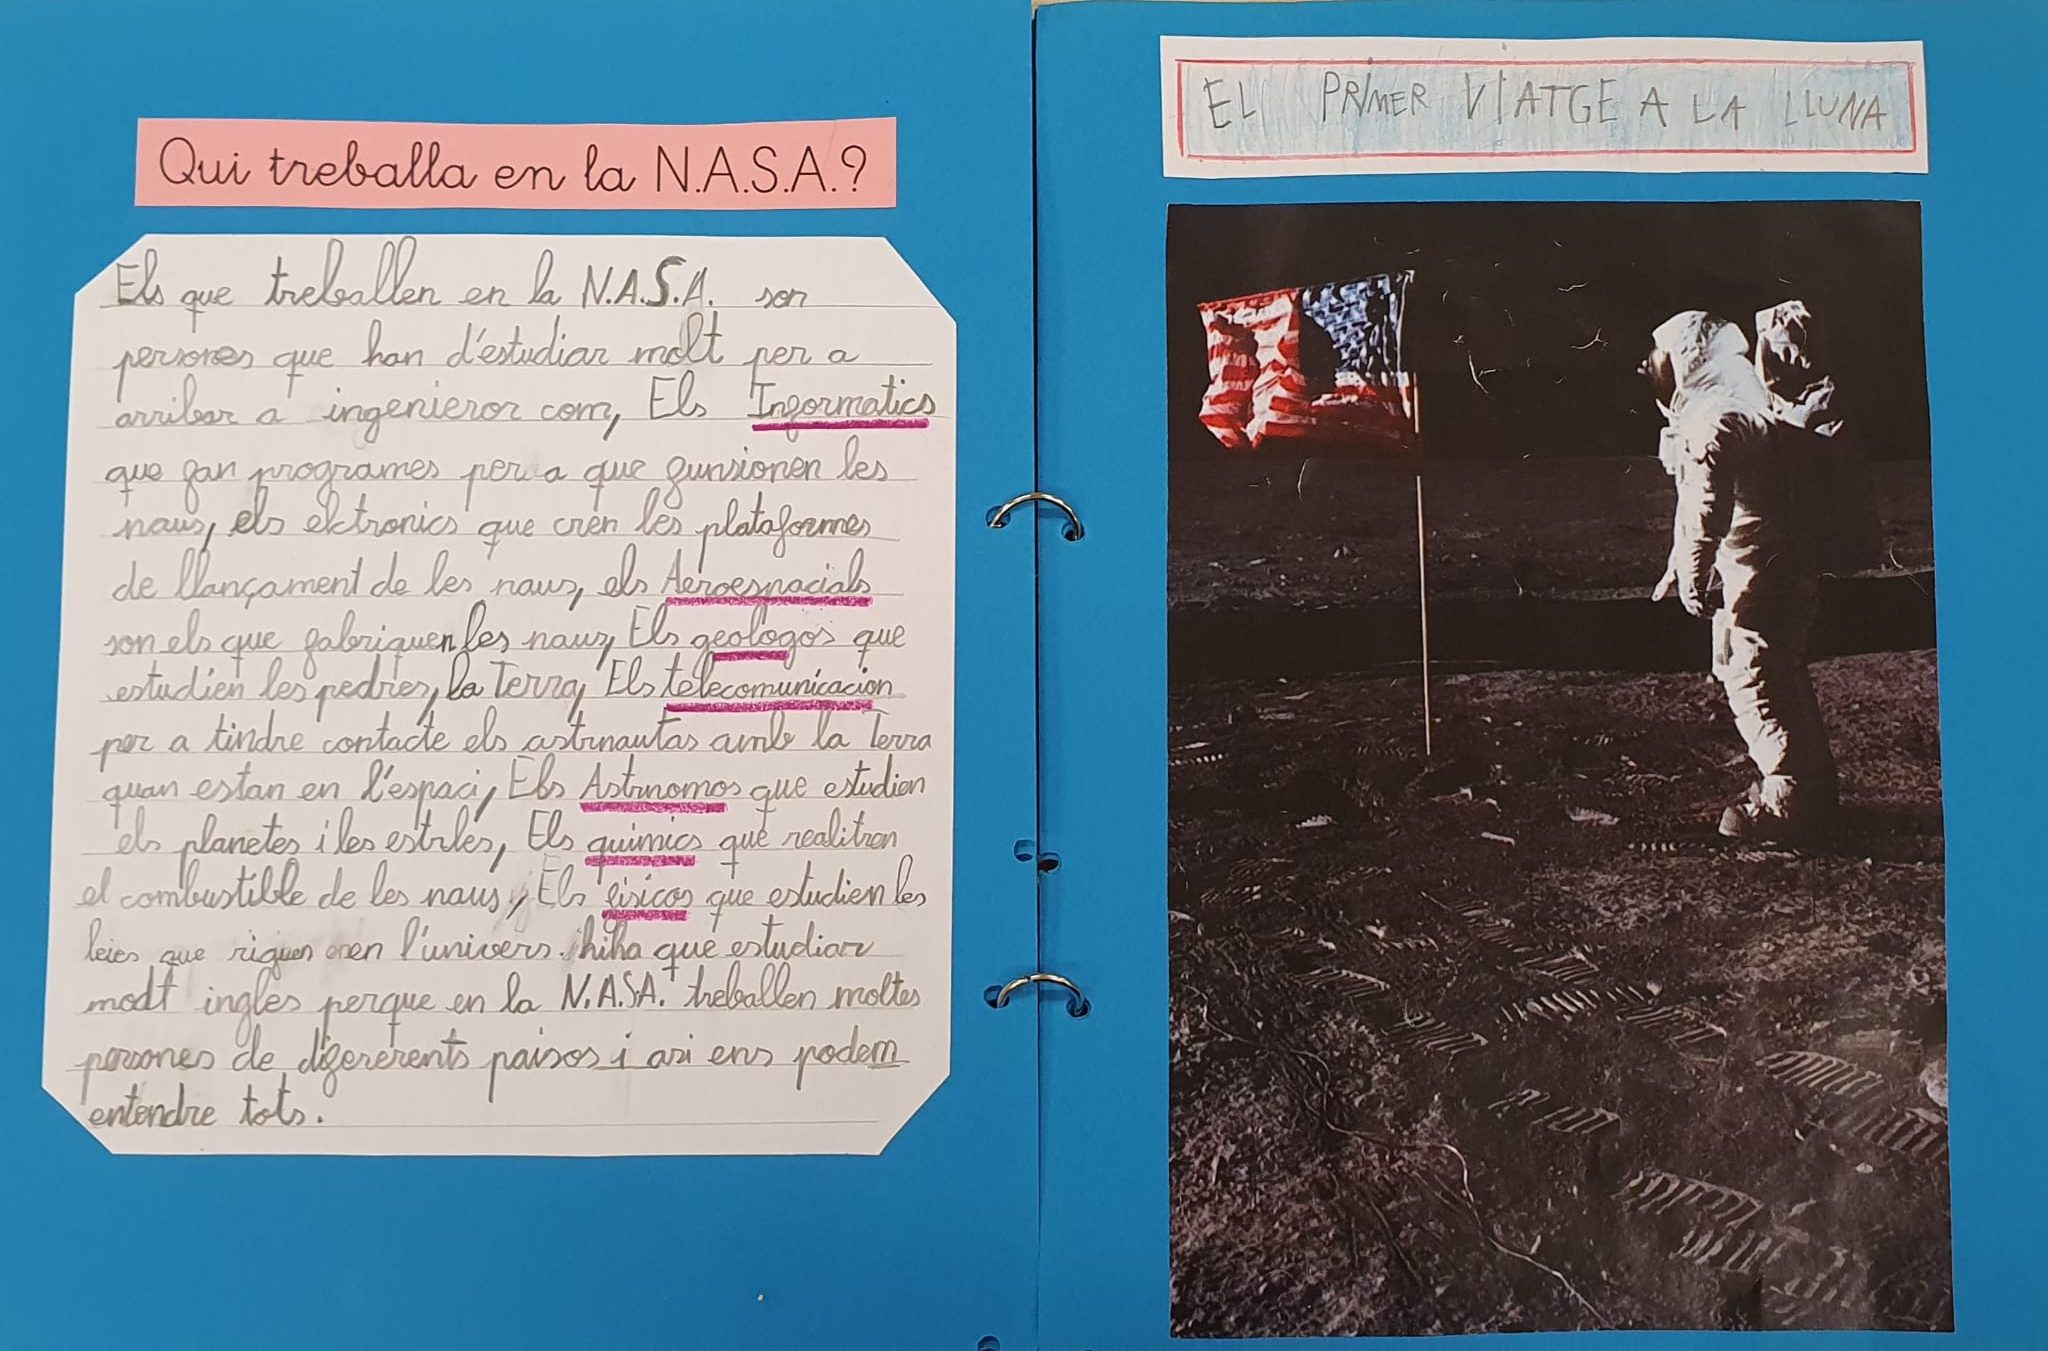 Qui treballa en la N.A.S.A.?
Els que treballen en la N.A.S.A. son
persones que han d'estudiar molt per a
arribar a ingenieror com, Els Informatics
que fan programes per a que funsionen les
naus, els elctronics que cren les plataformes
de llançament de les naus, els Aeroespacials
son els que fabriquen les naus, Els geologos que
estudien les pedres, la Terra, Els telecomunicacion
per a tindre contacte els astrnautas amb la Terra
quan estan en l'espaci, Els Astrnomos que estudien
els planetes i les estrles, Els quimics que realitzen
el combustible de les naus, Els fisicos que estudien les
leies que riguen en l'univers. hiha que estudiar
modt ingles perque en la N.A.S.A. treballen moltes
persones de difererents paisos i asi ens podem
entendre tots.
EL PRIMER VIATGE A LA LLUNA